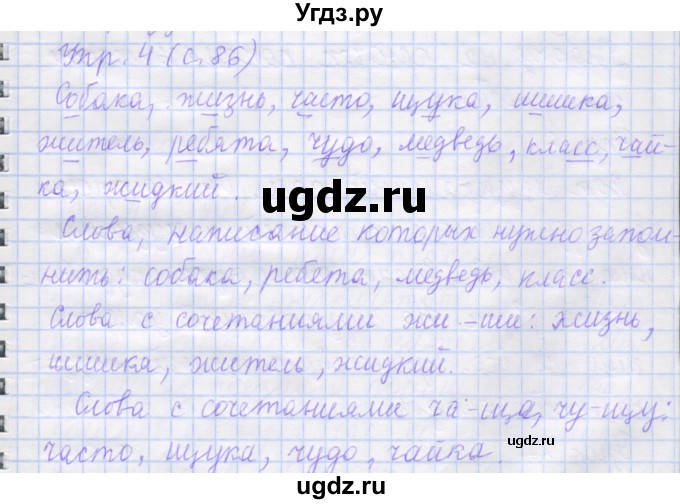 Угдз.ру
Упр. 4 (с. 86)
Собака, жизнь, часто, щука, шишка,
житель, ребята, чудо, медведь, класс, чай-
ка, жидкий.
ugdz.ru
Слова, написание которых нужно запом-
нить: собака, ребета, медведь, класс.
Слова с сочетаниями жи-ши: жизнь,
шишка, житель, жидкий.
Слова с сочетаниями ча-ща, чу-щу:
ugdz.ru
часто, щука, чудо, чайка.
ugdz.ru